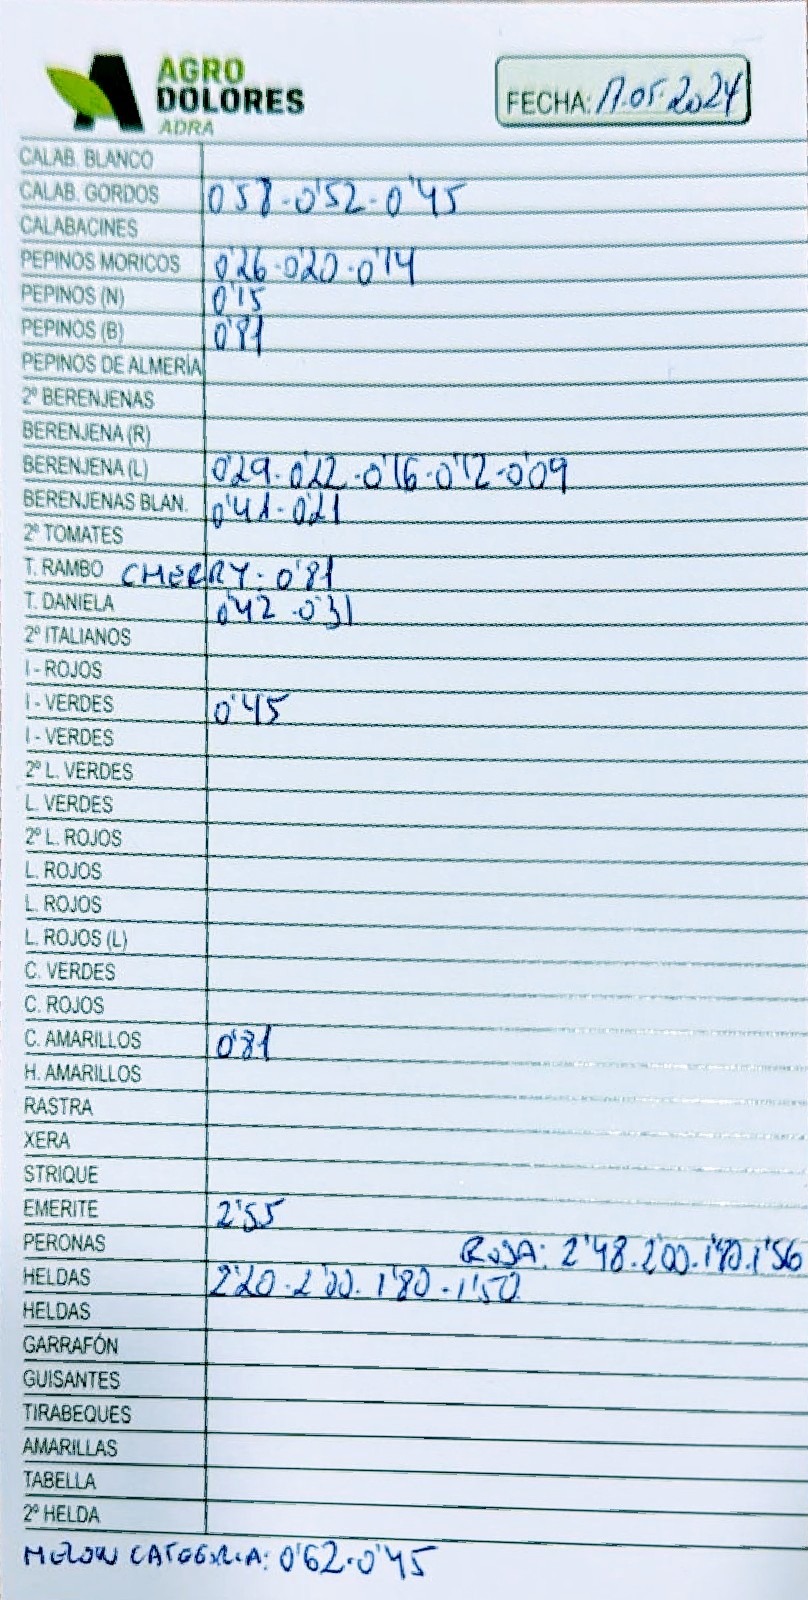 AGRO
DOLORES
ADRA
FECHA: 17.05.2024
CALAB. BLANCO
CALAB. GORDOS 0'58-0'52-0'45
CALABACINES
PEPINOS MORICOS 0'26-0'20-0'14
PEPINOS (N) 0'15
PEPINOS (B) 0'81
PEPINOS DE ALMERÍA
2º BERENJENAS
BERENJENA (R)
BERENJENA (L) 0'29-0'22-0'16-0'12-0'09
BERENJENAS BLAN. 0'41-0'21
2º TOMATES
T. RAMBO CHERRY- 0'81
T. DANIELA 0'42-0'31
2º ITALIANOS
I - ROJOS
I - VERDES 0'45
I - VERDES
2º L. VERDES
L. VERDES
2º L. ROJOS
L. ROJOS
L. ROJOS
L. ROJOS (L)
C. VERDES
C. ROJOS
C. AMARILLOS 0'81
H. AMARILLOS
RASTRA
XERA
STRIQUE
EMERITE 2'55
PERONAS ROJA: 2'48-2'00-1'90-1'56
HELDAS 2'20-2'00-1'80-1'50
HELDAS
GARRAFÓN
GUISANTES
TIRABEQUES
AMARILLAS
TABELLA
2º HELDA
MELON CATEGORIA: 0'62-0'45